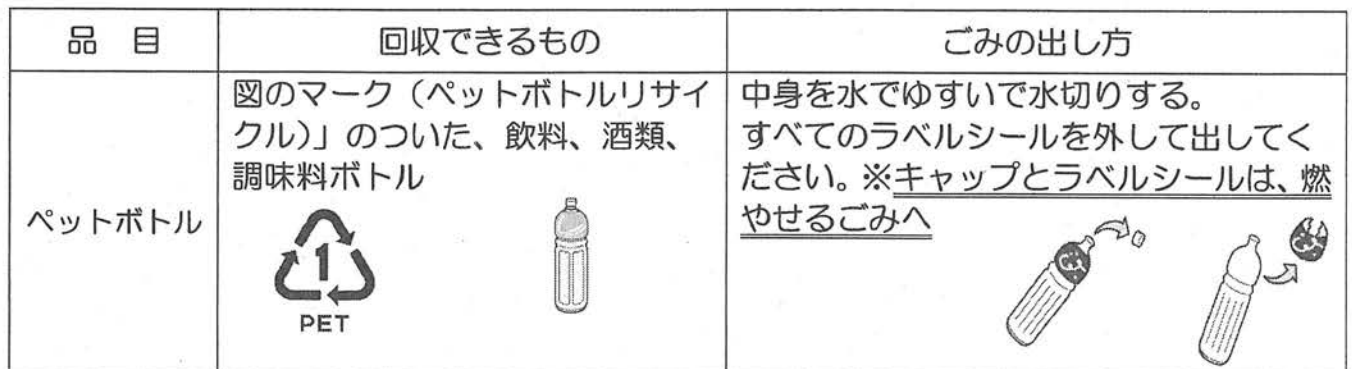 品　目
回収できるもの
ごみの出し方
ペットボトル
図のマーク（ペットボトルリサイ
クル）」のついた、飲料、酒類、
調味料ボトル
1
PET
中身を水でゆすいで水切りする。
すべてのラベルシールを外して出してく
ださい。※キャップとラベルシールは、燃
やせるごみへ